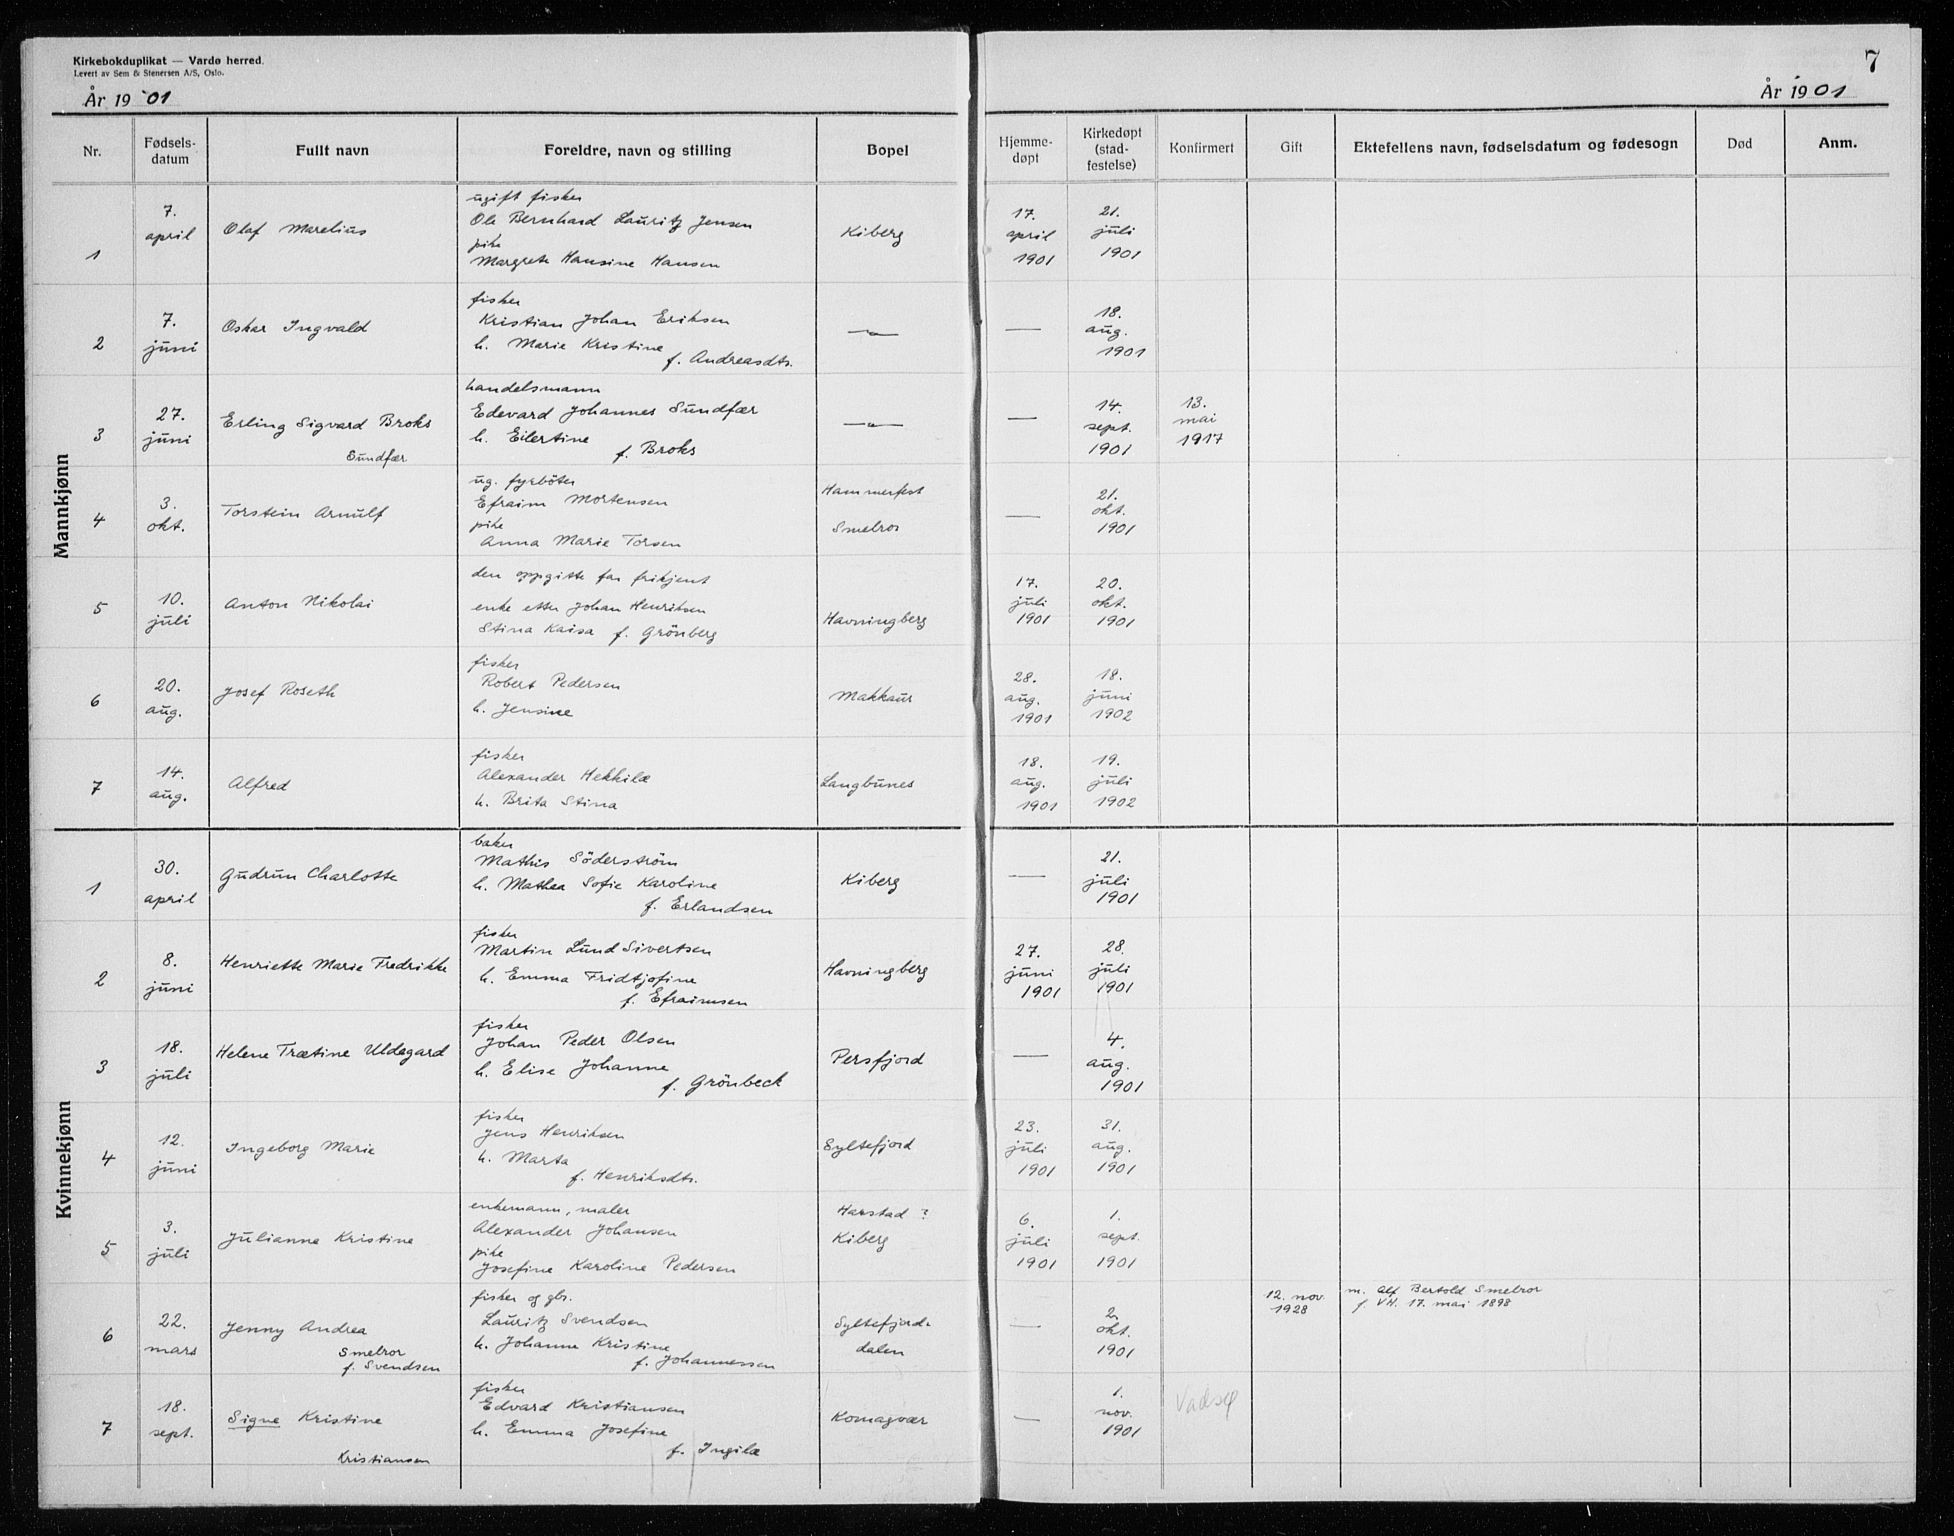 Kirkebokduplikat — Vardø herred.
Levert av Sem & Stenersen A/S, Oslo.
År 1901
7
År 1901
Nr. Fødselsdatum Fullt navn Foreldre, navn og stilling Bopel Hjemmedøpt Kirkedøpt (stadfestelse) Konfirmert Gift Ektefellens navn, fødselsdatum og fødesogn Død Anm.
Mannkjønn
1 7. april Olaf Marelius
ugift fisker
Ole Bernhard Lauritz Jensen
pike
Margrete Hansine Hansen
Kiberg 17. april 1901 21. juli 1901
2 7. juni Oskar Ingvald
fisker
Kristian Johan Eriksen
h. Marie Kristine
f. Andreasdts.
—"— — 18. aug. 1901
3 27. juni Erling Sigvard Broks
Sundfær
handelsmann
Edevard Johannes Sundfær
h. Eilertine
f. Broks
—"— — 14. sept. 1901 13. mai 1917
4 3. okt. Torstein Arnulf
ug. fyrböter
Efraim Mortensen
pike
Anna Marie Torsen
Hammerfest
Smelror
— 21. okt. 1901
5 10. juli Anton Nikolai
den oppgitte far frikjent
enke etter Johan Henriksen
Stina Kaisa f. Grönberg
Havningberg 17. juli 1901 20. okt. 1901
6 20. aug. Josef Roseth
fisker
Robert Pedersen
h. Jensine
Makkaur 28. aug. 1901 18. juni 1902
7 14. aug. Alfred
fisker
Alexander Hekkilæ
h. Brita Stina
Langbunes 18. aug. 1901 19. juli 1902
Kvinnekjønn
1 30. april Gudrun Charlotte
baker
Mathis Söderström
h. Mathea Sofie Karoline
f. Erlandsen
Kiberg — 21. juli 1901
2 8. juni Henriette Marie Fredrikke
fisker
Martin Lund Sivertsen
h. Emma Fridtjofine
f. Efraimsen
Havningberg 27. juni 1901 28. juli 1901
3 18. juli Helene Trætine Uldagard
fisker
Johan Peder Olsen
h. Elise Johanne
f. Grönbeck
Persfjord — 4. aug. 1901
4 12. juni Ingeborg Marie
fisker
Jens Henriksen
h. Marta
f. Henriksdts.
Syltefjord 23. juli 1901 31. aug. 1901
5 3. juli Julianne Kristine
enkemann, maler
Alexander Johansen
pike
Josefine Karoline Pedersen
Harstad ?
Kiberg
6. juli 1901 1. sept. 1901
6 22. mars Jenny Andrea
Smelror
f. Svendsen
fisker og gbr.
Lauritz Svendsen
h. Johanne Kristine
f. Johannessen
Syltefjord-
dalen
— 2. okt. 1901 12. nov. 1928
m. Alf Bertold Smelror
f. VH. 17. mai 1898
7 18. sept. Signe Kristine
Kristiansen
fisker
Edvard Kristiansen
h. Emma Josefine
f. Ingilæ
Komagvær — 1. nov. 1901 Vadsø